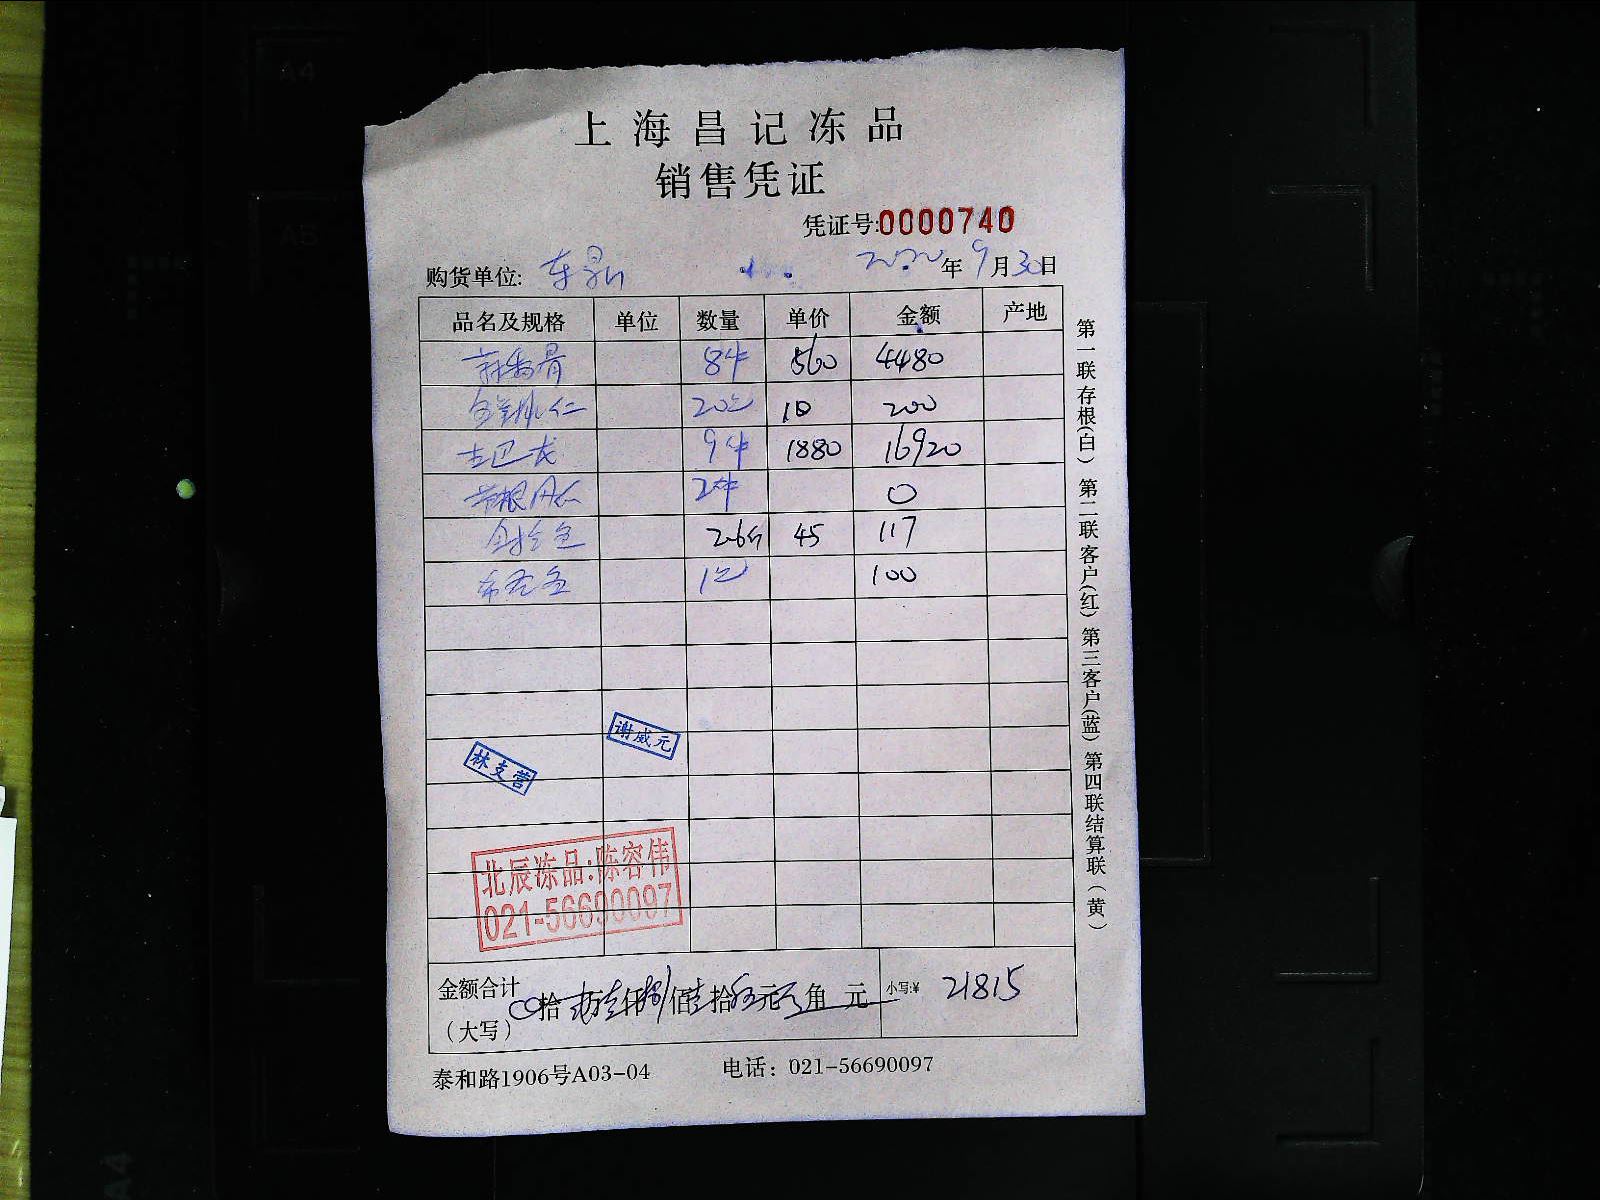 上海昌记冻品
销售凭证
凭证号:0000740
购货单位: 年9月30日
品名及规格 单位 数量 单价 金额 产地
8件 560 4480
20包 10 200
古巴龙 9件 1880 16920
2件 0
2.6斤 45 117
1包 100
谢威元
林支营
北辰冻品:陈容伟
021-56690097
金额合计(大写) 拾 万 仟 佰 拾 元 角 元 小写:¥ 21815
泰和路1906号A03-04 电话：021-56690097
第一联存根(白) 第二联客户(红) 第三客户(蓝) 第四联结算联(黄)
A4
A5
A4